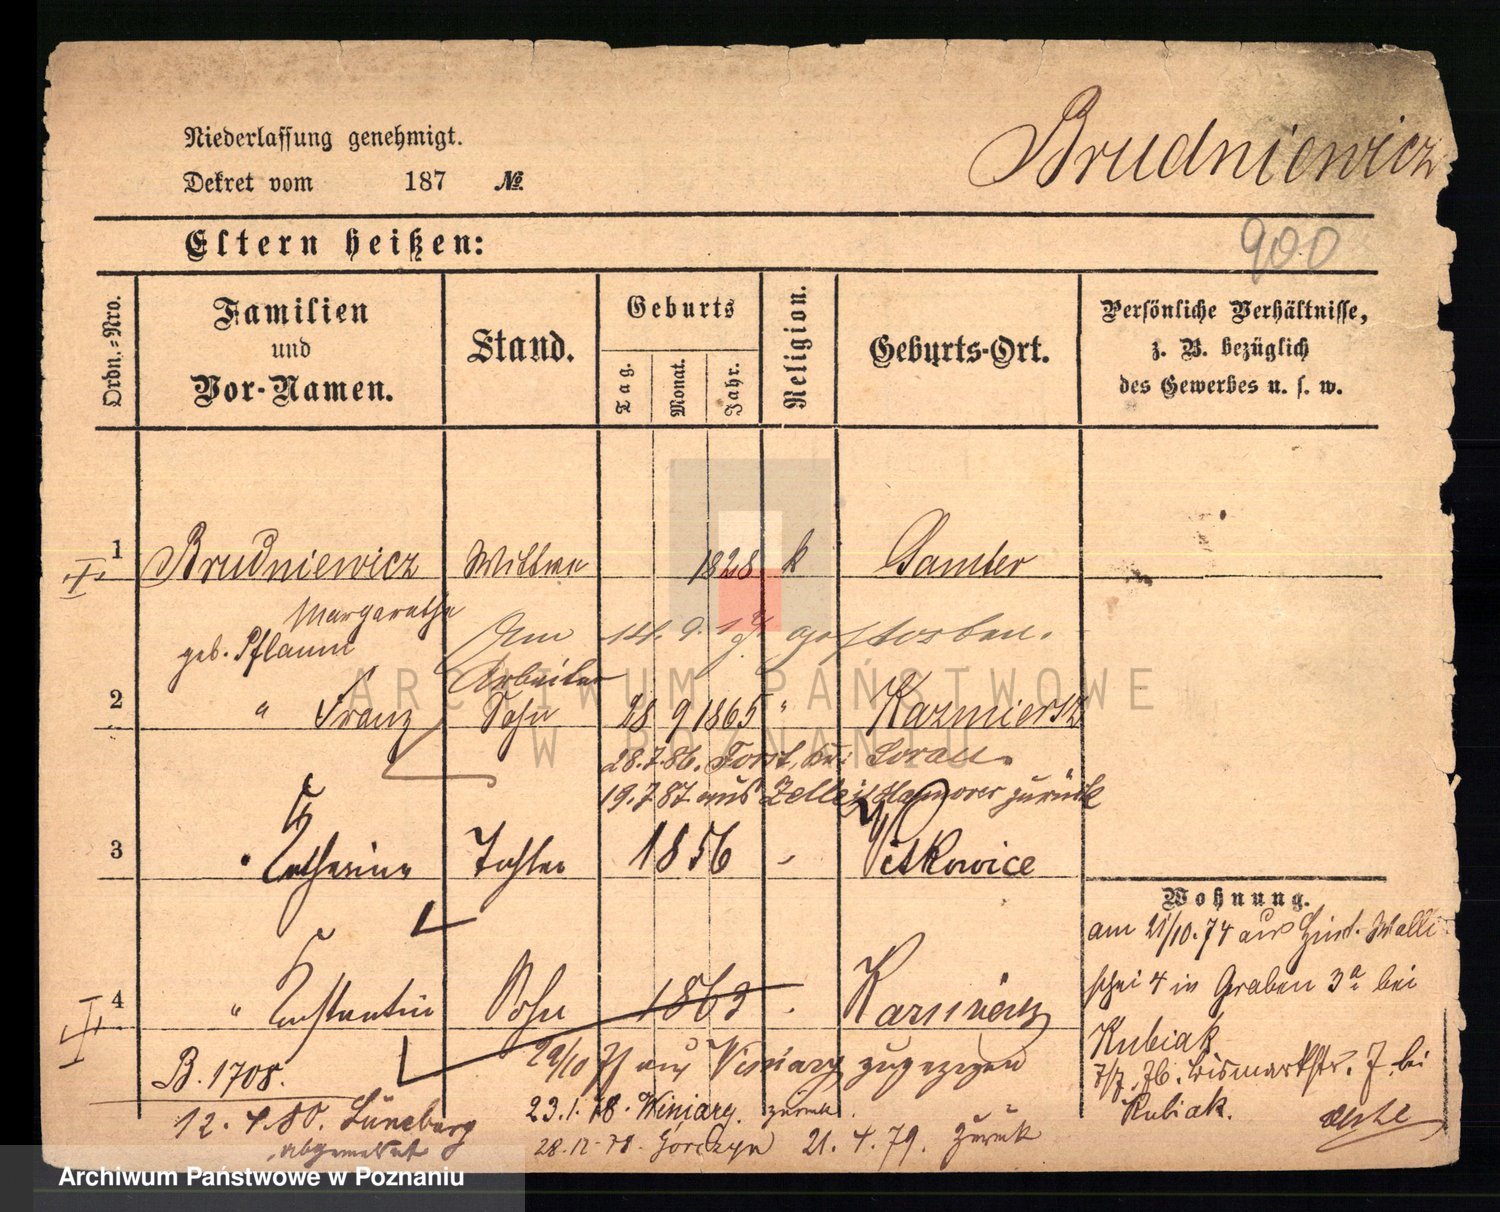 Niederlassung genehmigt.
Dekret vom 187 №
Brudniewicz
900
Eltern heißen:
Ordn.=Nro.
Familien
und
Vor-Namen.
Stand.
Geburts
Tag.
Monat.
Jahr.
Religion.
Geburts-Ort.
Persönliche Verhältnisse,
z. B. bezüglich
des Gewerbes u. s. w.
1 Brudniewicz Wittwe 1828 k Samter
Margarethe
geb. Pflaum
Am 14. 9. gestorben.
Arbeiter
2 " Franz Sohn 28 9 1865 " Kazmiersz
28.7.86. Forst, Kr: Sorau.
19.7.87 aus Zelle Hannover zurück
3 Catherine Tochter 1856 Witkowice
4 " Constantin Sohn 1863 Kazmierz
Wohnung.
am 21/10.74 aus Hint. Walli
schei 4 in Graben 3a bei
Kubiak
7/7. 76. Bismarkstr. 7. bei
Kubiak.
B. 1708.
29/10 77 aus Winiary zugezogen
12. 4. 80. Lüneburg
abgemeldet
23.1.78. Winiary zurück.
28.12.78. Górczyn 21. 4. 79. zurück
ARCHIWUM PAŃSTWOWE
W POZNANIU
Archiwum Państwowe w Poznaniu